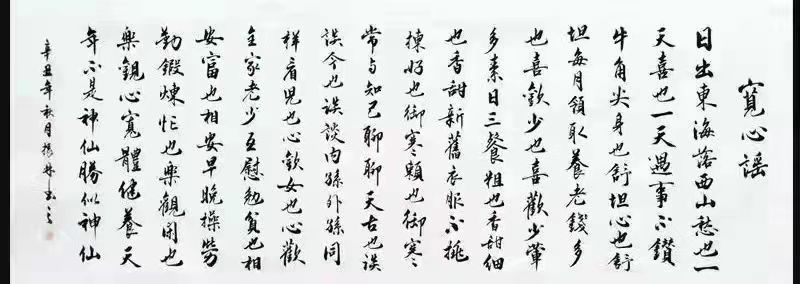 寬心謠
日出東海落西山愁也一
天喜也一天遇事不鑽
牛角尖身也舒坦心也舒
坦每月領取養老錢多
也喜歡少也喜歡少葷
多素日三餐粗也香甜細
也香甜新舊衣服不挑
揀好也御寒賴也御寒
常与知己聊聊天古也談
談今也談談内孫外孫同
樣看兒也心歡女也心歡
全家老少互慰勉貧也相
安富也相安早晚操勞
勤鍛煉忙也樂觀閑也
樂觀心寬體健養天
年不是神仙勝似神仙
辛丑年秋月振林書之